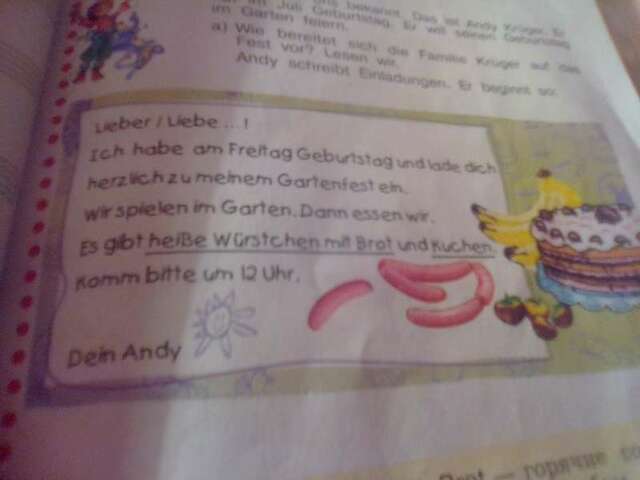 uns bekannt. Das ist Andy Krüger. Er
im Juli Geburtstag. Er will seinen Geburtstag
im Garten feiern.
a) Wie bereitet sich die Familie Krüger auf das
Fest vor? Lesen wir.
Andy schreibt Einladungen. Er beginnt so:
Lieber / Liebe ... !
Ich habe am Freitag Geburtstag und lade dich
herzlich zu meinem Gartenfest ein.
Wir spielen im Garten. Dann essen wir.
Es gibt heiße Würstchen mit Brot und Kuchen.
Komm bitte um 12 Uhr.
Dein Andy
Brot — горячие со